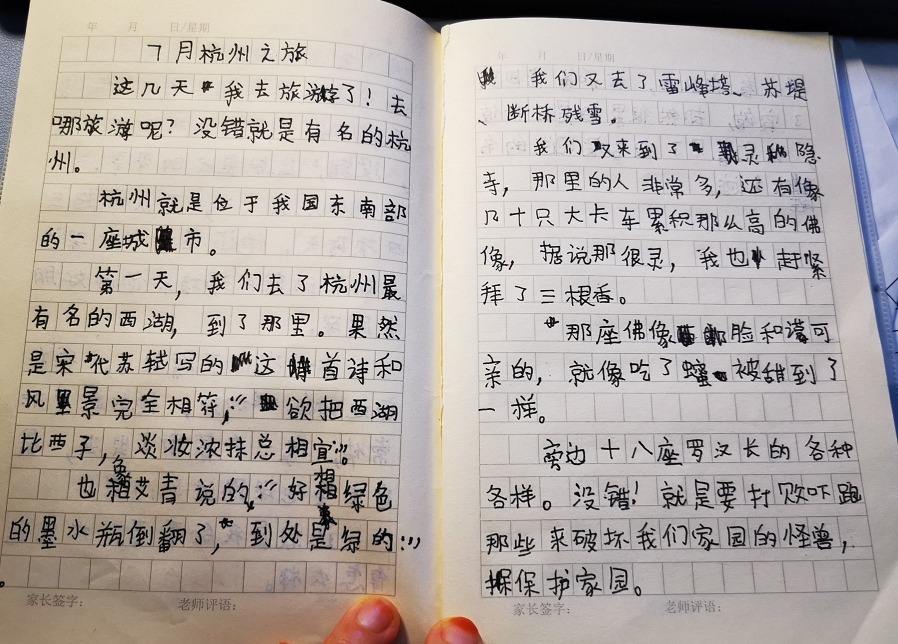 年 月 日/星期
7月杭州之旅
这几天我去旅游了！去
哪旅游呢？没错就是有名的杭
州。
杭州就是位于我国东南部
的一座城市。
第一天，我们去了杭州最
有名的西湖，到了那里。果然
是宋代苏轼写的这首诗和
风景完全相符，“欲把西湖
比西子，淡妆浓抹总相宜”。
也像艾青说的：“好想绿色
的墨水瓶倒翻了，到处是绿的”
。
家长签字： 老师评语：
年 月 日/星期
我们又去了雷峰塔、苏堤
、断桥残雪。
我们又来到了灵隐
寺，那里的人非常多，还有像
几十只大卡车累积那么高的佛
像，据说那很灵，我也赶紧
拜了三根香。
那座佛像脸和蔼可
亲的，就像吃了被甜到了
一样。
旁边十八座罗汉长的各种
各样。没错！就是要打败吓跑
那些来破坏我们家园的怪兽，
保护家园。
家长签字： 老师评语：